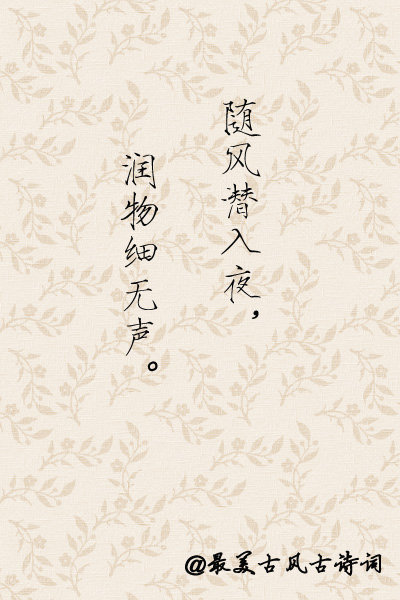 随风潜入夜，
润物细无声。
@最美古风古诗词